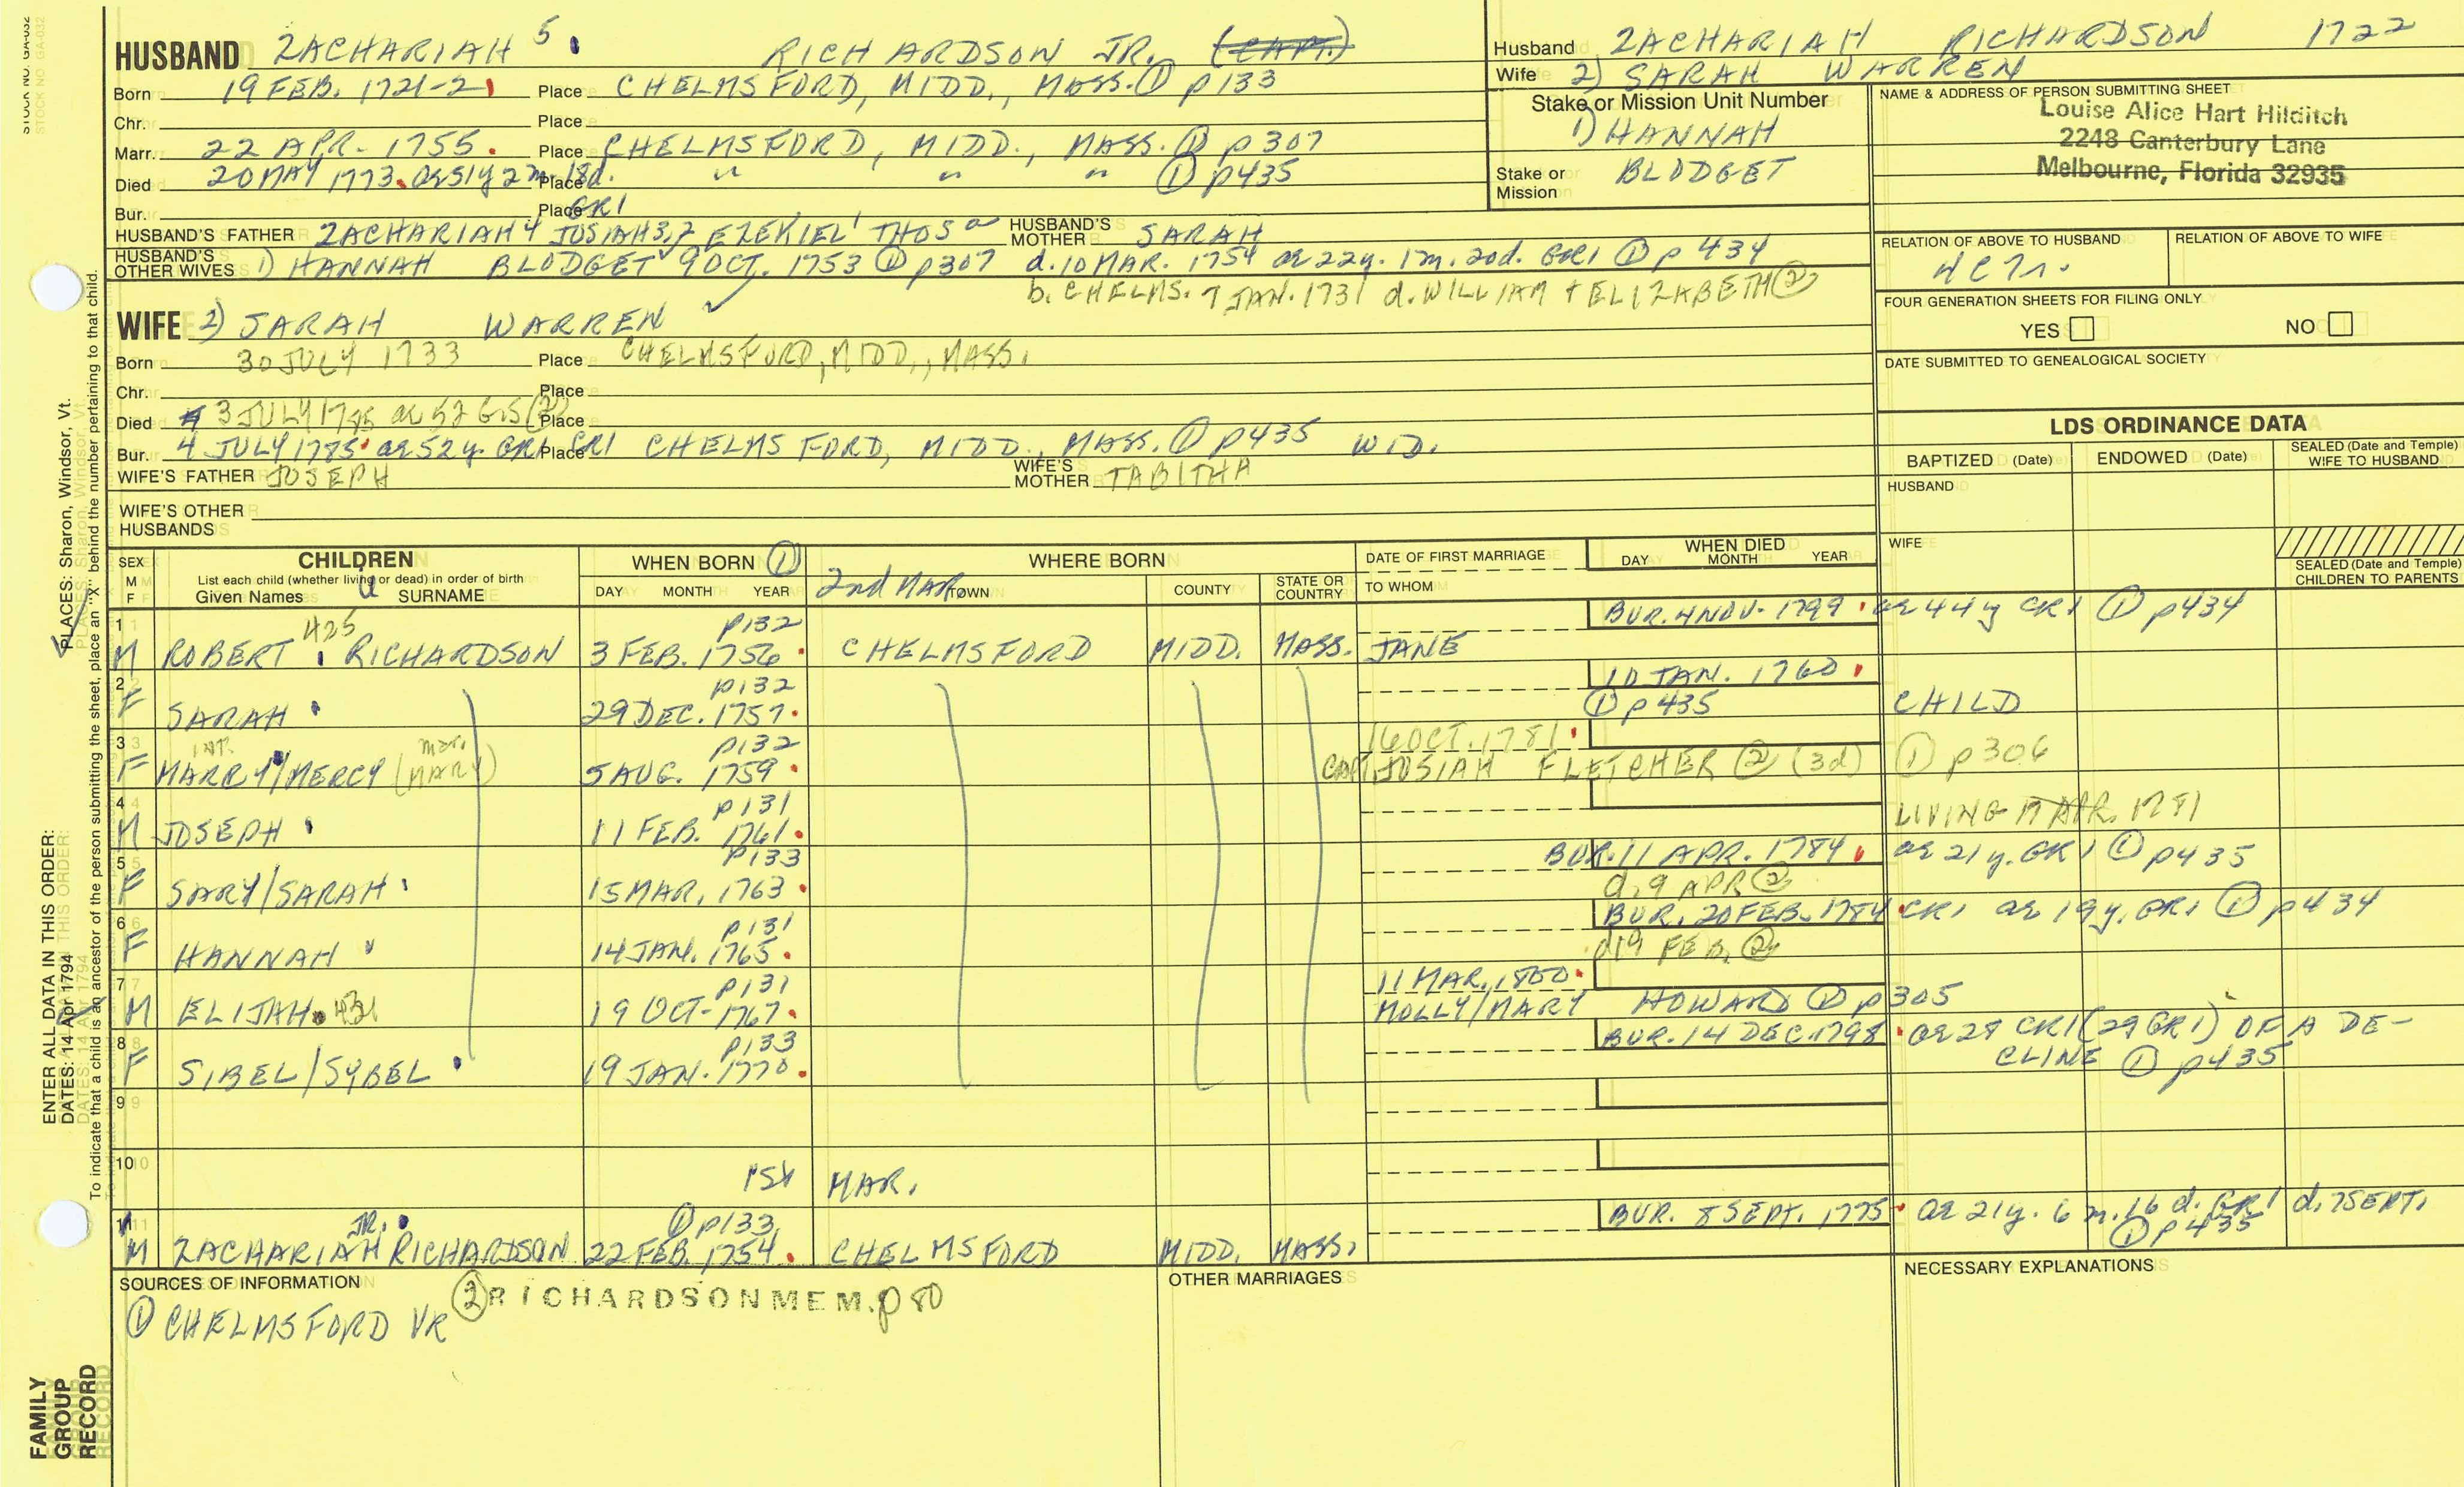 STOCK NO. GA-032
HUSBAND ZACHARIAH 5 RICHARDSON JR. (CAPT.)
Born 19 FEB. 1721-2 Place CHELMSFORD, MIDD., MASS. ① p133
Chr. Place
Marr. 22 APR. 1755. Place CHELMSFORD, MIDD., MASS. ① p307
Died 20 MAY 1773. ae 51y 2m 18d. Place " " " ① p435
Bur. Place GR1
HUSBAND'S FATHER ZACHARIAH 4 JOSIAH 3,2 EZEKIEL 1 THOS a HUSBAND'S MOTHER SARAH
HUSBAND'S OTHER WIVES 1) HANNAH BLODGET 9 OCT. 1753 ① p307 d. 10 MAR. 1754 ae 22y. 1m. 20d. GR1 ① p 434
b. CHELMS. 7 JAN. 1731 d. WILLIAM + ELIZABETH ②
WIFE 2) SARAH WARREN
Born 30 JULY 1733 Place CHELMSFORD, MIDD., MASS.
Chr. Place
Died 3 JULY 1785 ae 52 GS (2) Place
Bur. 4 JULY 1785 ae 52y. GR1 Place CR1 CHELMSFORD, MIDD., MASS. ① p435 WID.
WIFE'S FATHER JOSEPH WIFE'S MOTHER TABITHA
WIFE'S OTHER HUSBANDS
Husband ZACHARIAH RICHARDSON 1722
Wife 2) SARAH WARREN
Stake or Mission Unit Number
1) HANNAH
Stake or Mission BLODGET
NAME & ADDRESS OF PERSON SUBMITTING SHEET
Louise Alice Hart Hilditch
2248 Canterbury Lane
Melbourne, Florida 32935
RELATION OF ABOVE TO HUSBAND RELATION OF ABOVE TO WIFE
4C7r.
FOUR GENERATION SHEETS FOR FILING ONLY
YES NO
DATE SUBMITTED TO GENEALOGICAL SOCIETY
LDS ORDINANCE DATA
BAPTIZED (Date) ENDOWED (Date) SEALED (Date and Temple) WIFE TO HUSBAND
HUSBAND
WIFE
SEALED (Date and Temple) CHILDREN TO PARENTS
SEX M F CHILDREN
List each child (whether living or dead) in order of birth
Given Names SURNAME
WHEN BORN ① DAY MONTH YEAR
WHERE BORN 2nd MAR. TOWN COUNTY STATE OR COUNTRY
DATE OF FIRST MARRIAGE TO WHOM
WHEN DIED DAY MONTH YEAR
1 425 p132 BUR. 4 NOV. 1799. ae 44y CR1 ① p434
M ROBERT RICHARDSON 3 FEB. 1756. CHELMSFORD MIDD. MASS. JANE
2 p132 10 JAN. 1760.
F SARAH 29 DEC. 1757. ① p435 CHILD
3 INT. mar. p132 16 OCT. 1781.
F MARRY/MERCY (MARY) 5 AUG. 1759. CAPT. JOSIAH FLETCHER ② (3d) ① p306
4 p131 LIVING 17 APR. 1781
M JOSEPH 11 FEB. 1761.
5 p133 BUR. 11 APR. 1784. ae 21y. GR1 ① p435
F SARY/SARAH 15 MAR. 1763. d. 9 APR ②
6 p131 BUR. 20 FEB. 1784. CR1 ae 19y. GR1 ① p434
F HANNAH 14 JAN. 1765. d 19 FEB. ②
7 p131 11 MAR. 1800.
M ELIJAH. 431 19 OCT. 1767. MOLLY/MARY HOWARD ① p305
8 p133 BUR. 14 DEC. 1798. ae 28 CR1 (29 GR1) OF A DE-
F SIBEL/SYBEL 19 JAN. 1770. CLINE ① p435
9
10
1st MAR.
11 JR. ① p133 BUR. 8 SEPT. 1775. ae 21y. 6 m. 16 d. GR1 d. 7 SEPT.
M ZACHARIAH RICHARDSON 22 FEB. 1754. CHELMSFORD MIDD. MASS. ① p435
SOURCES OF INFORMATION OTHER MARRIAGES NECESSARY EXPLANATIONS
① CHELMSFORD VR ② RICHARDSON MEM. p 80
ENTER ALL DATA IN THIS ORDER:
DATES: 14 Apr 1794 PLACES: Sharon, Windsor, Vt.
To indicate that a child is an ancestor of the person submitting the sheet, place an "X" behind the number pertaining to that child.
FAMILY
GROUP
RECORD